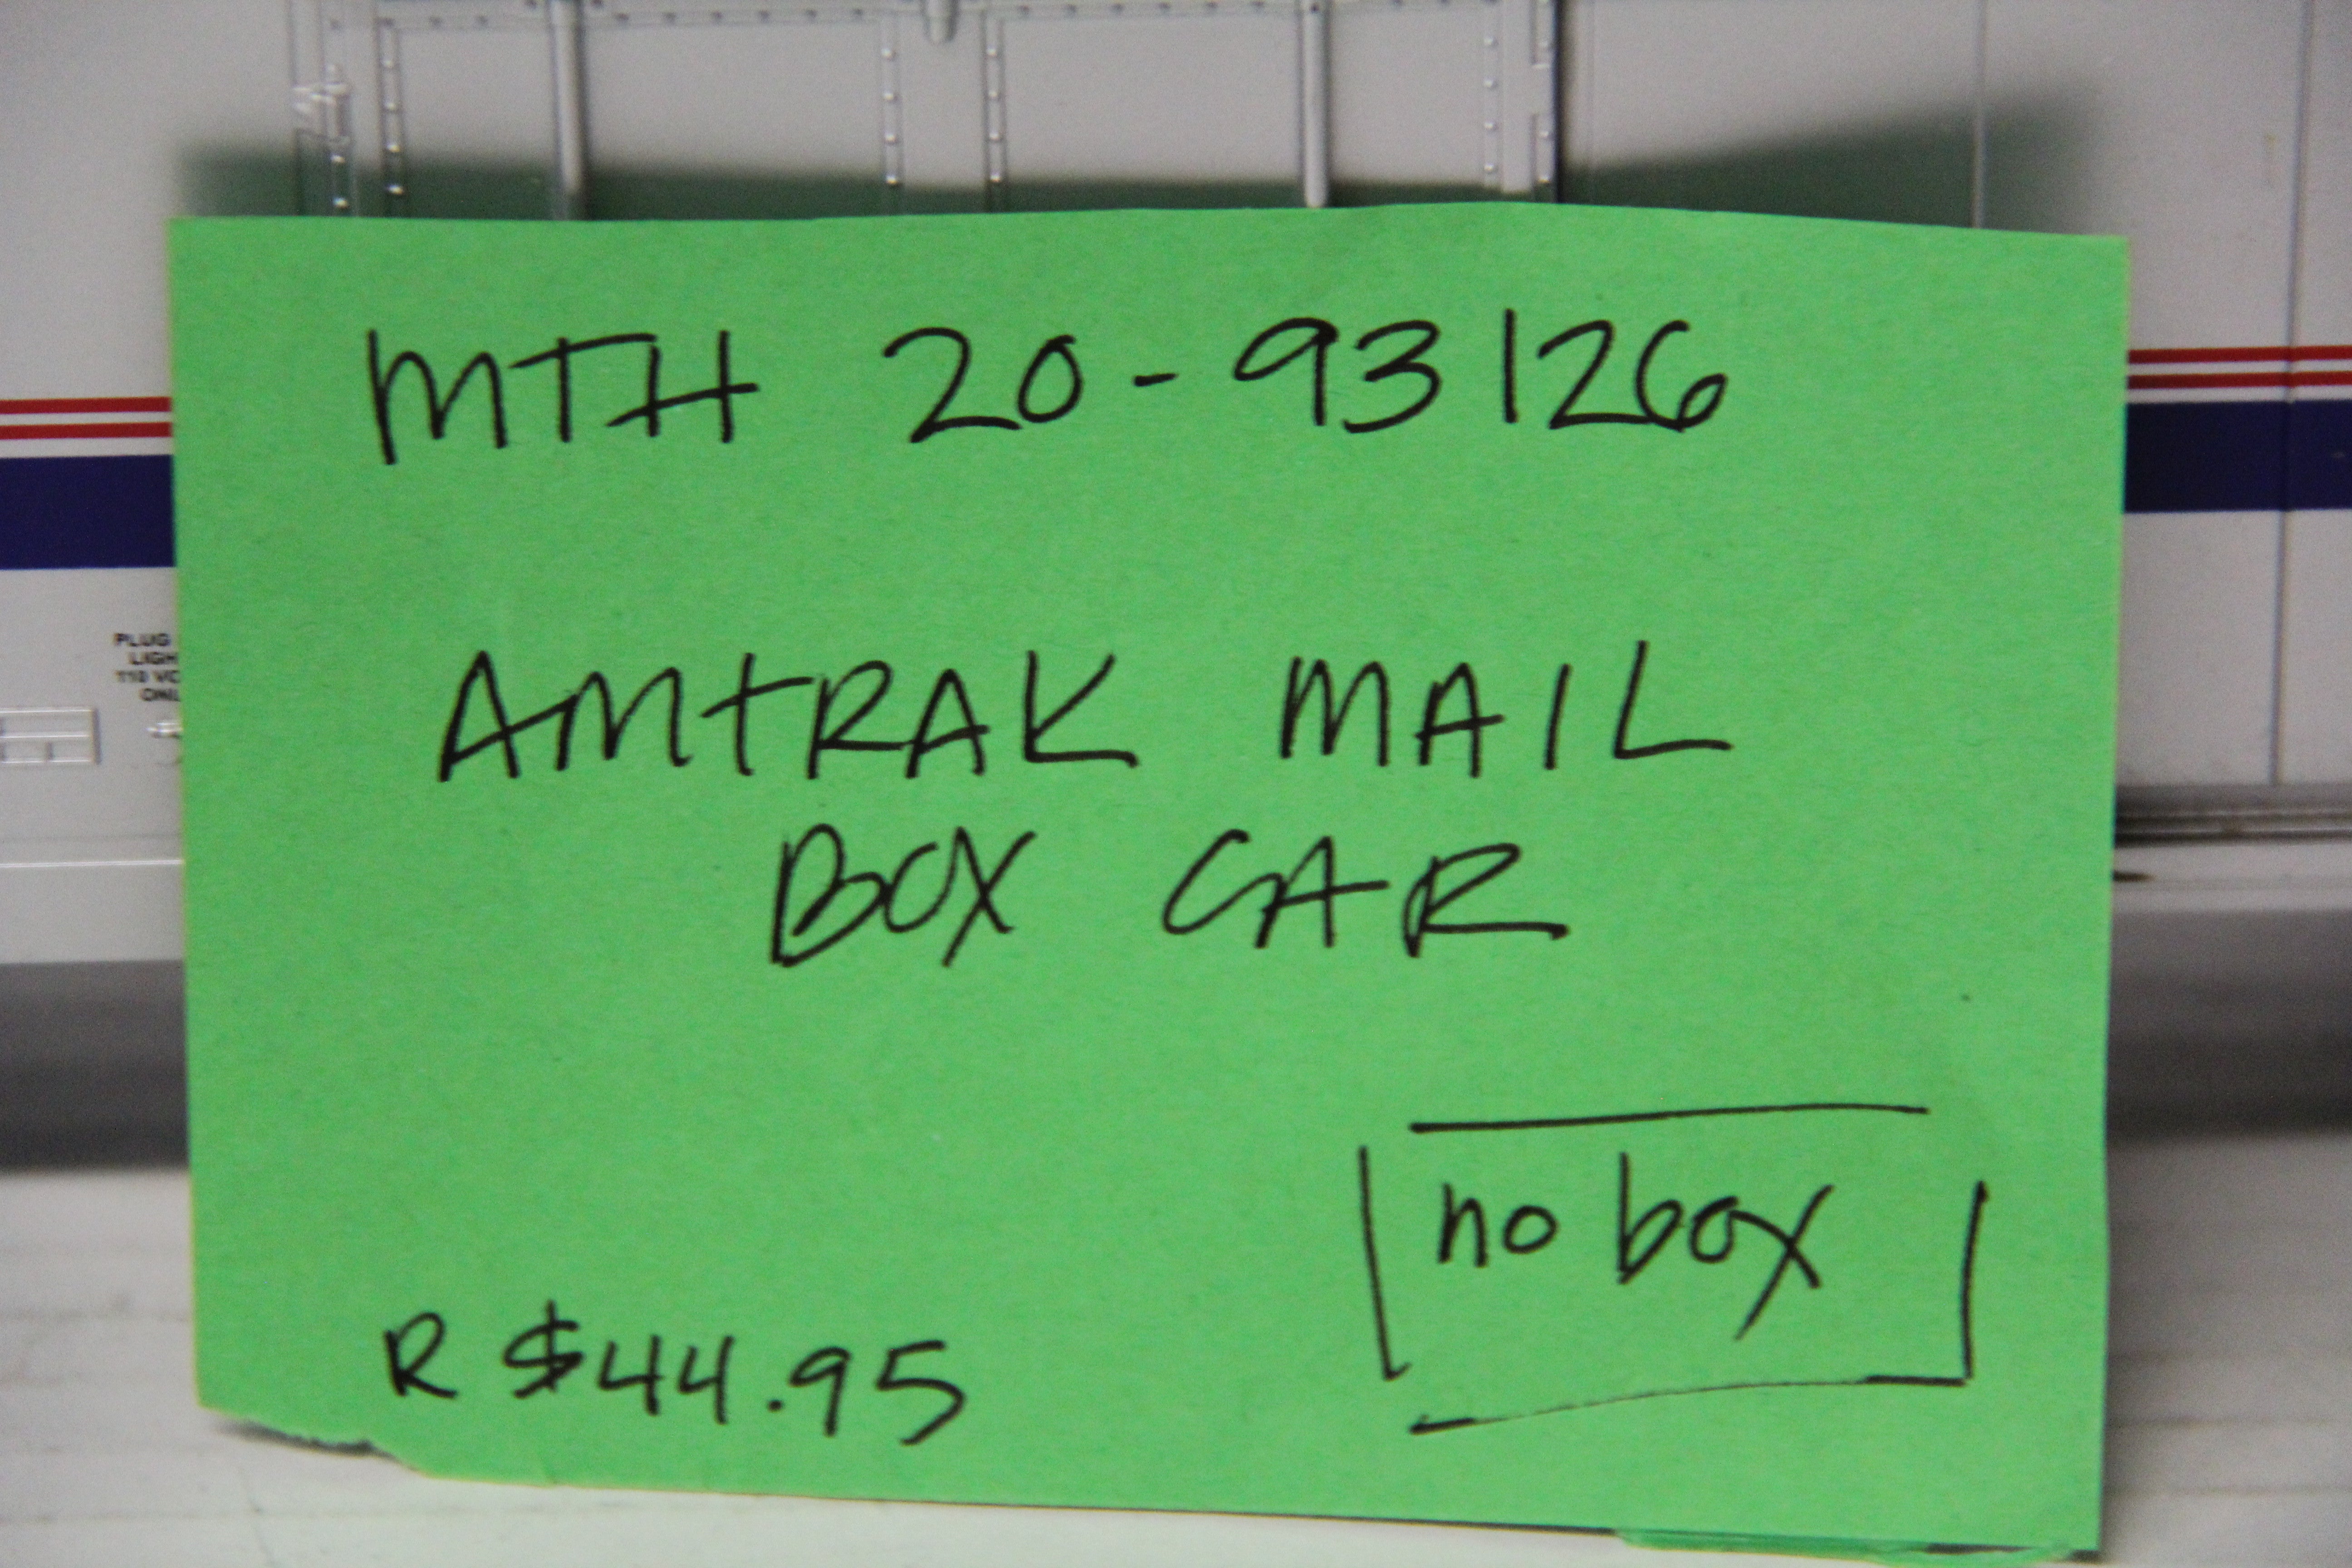 MTH 20-93126
AMTRAK MAIL
BOX CAR
no box
R $44.95
PLUG
110